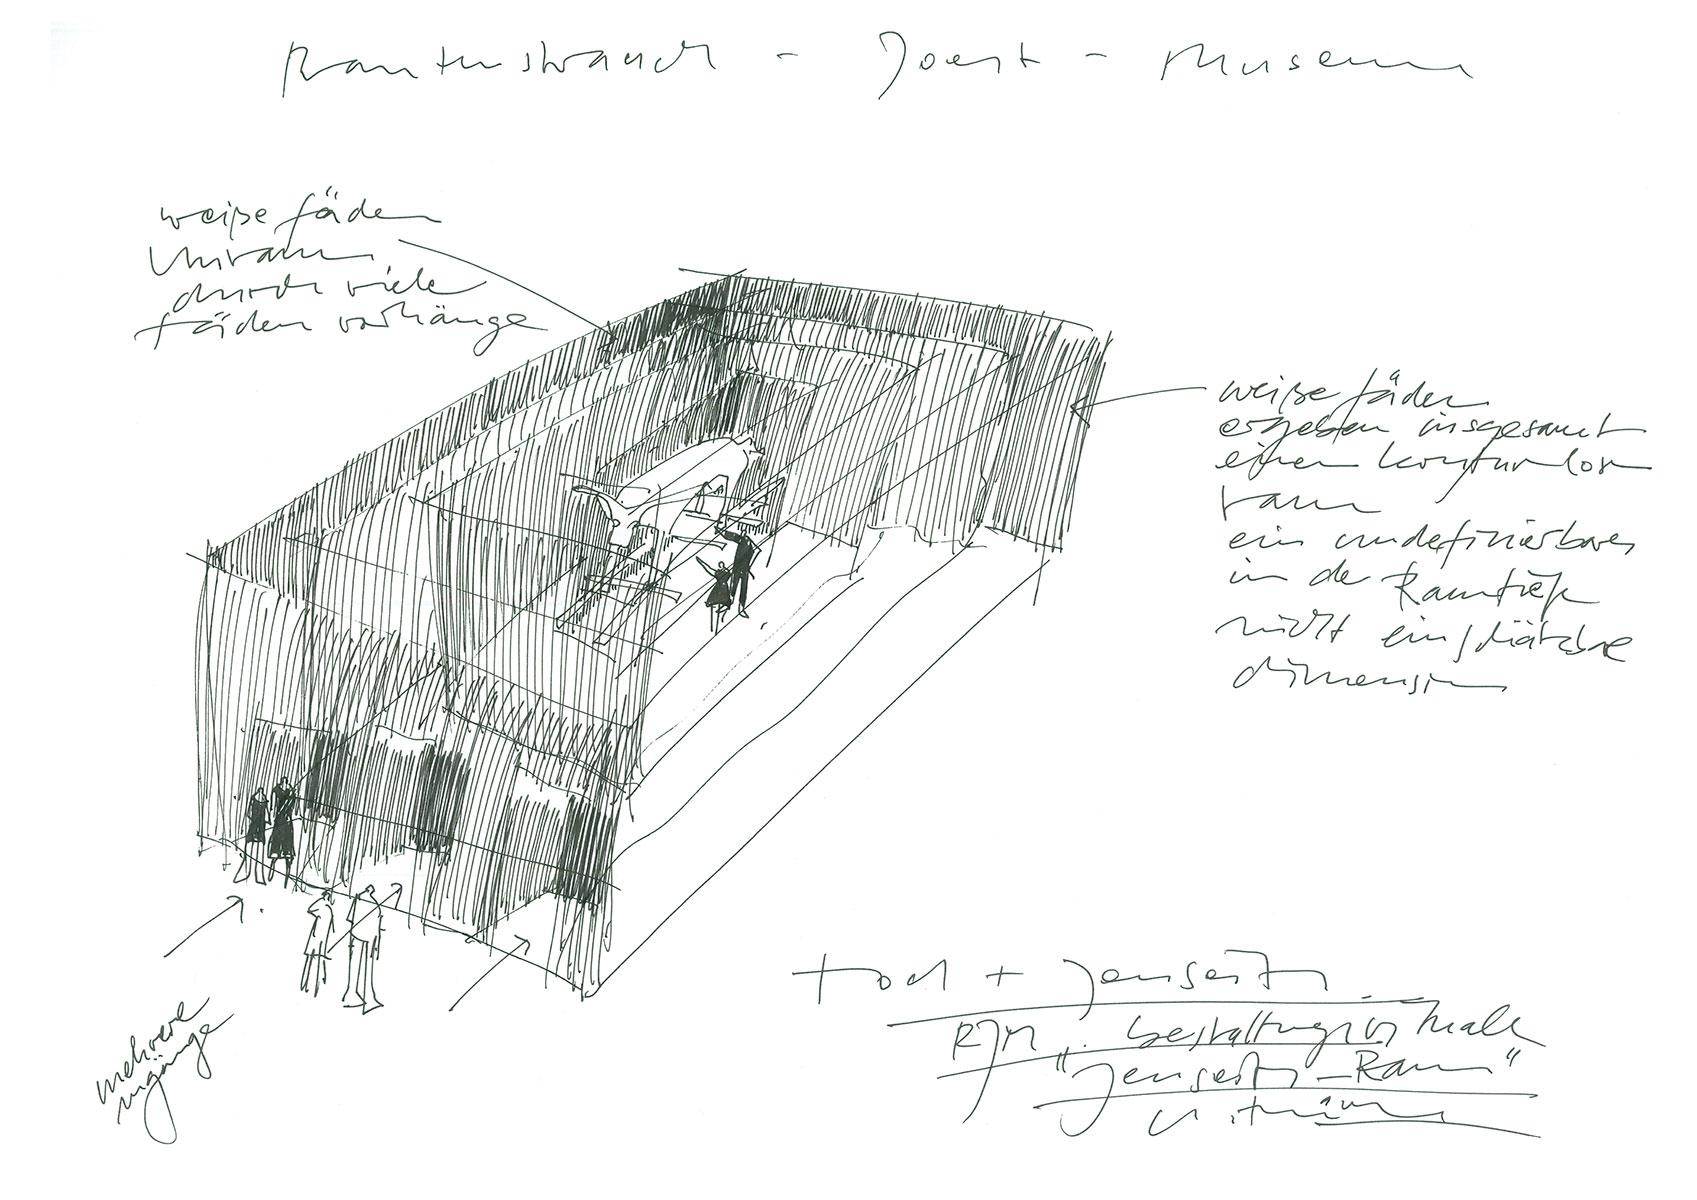 Rautenstrauch - Joest - Museum
weiße fäden
Umraum
durch viele
fäden vorhänge
weiße fäden
ergeben insgesamt
einen konturlosen
raum
ein undefinierbares
in der Raumtiefe
nicht einschätzbare
dimension
mehrere
eingänge
tod + Jenseits
RJM. bestattungsrituale
"Jenseits-Raum"